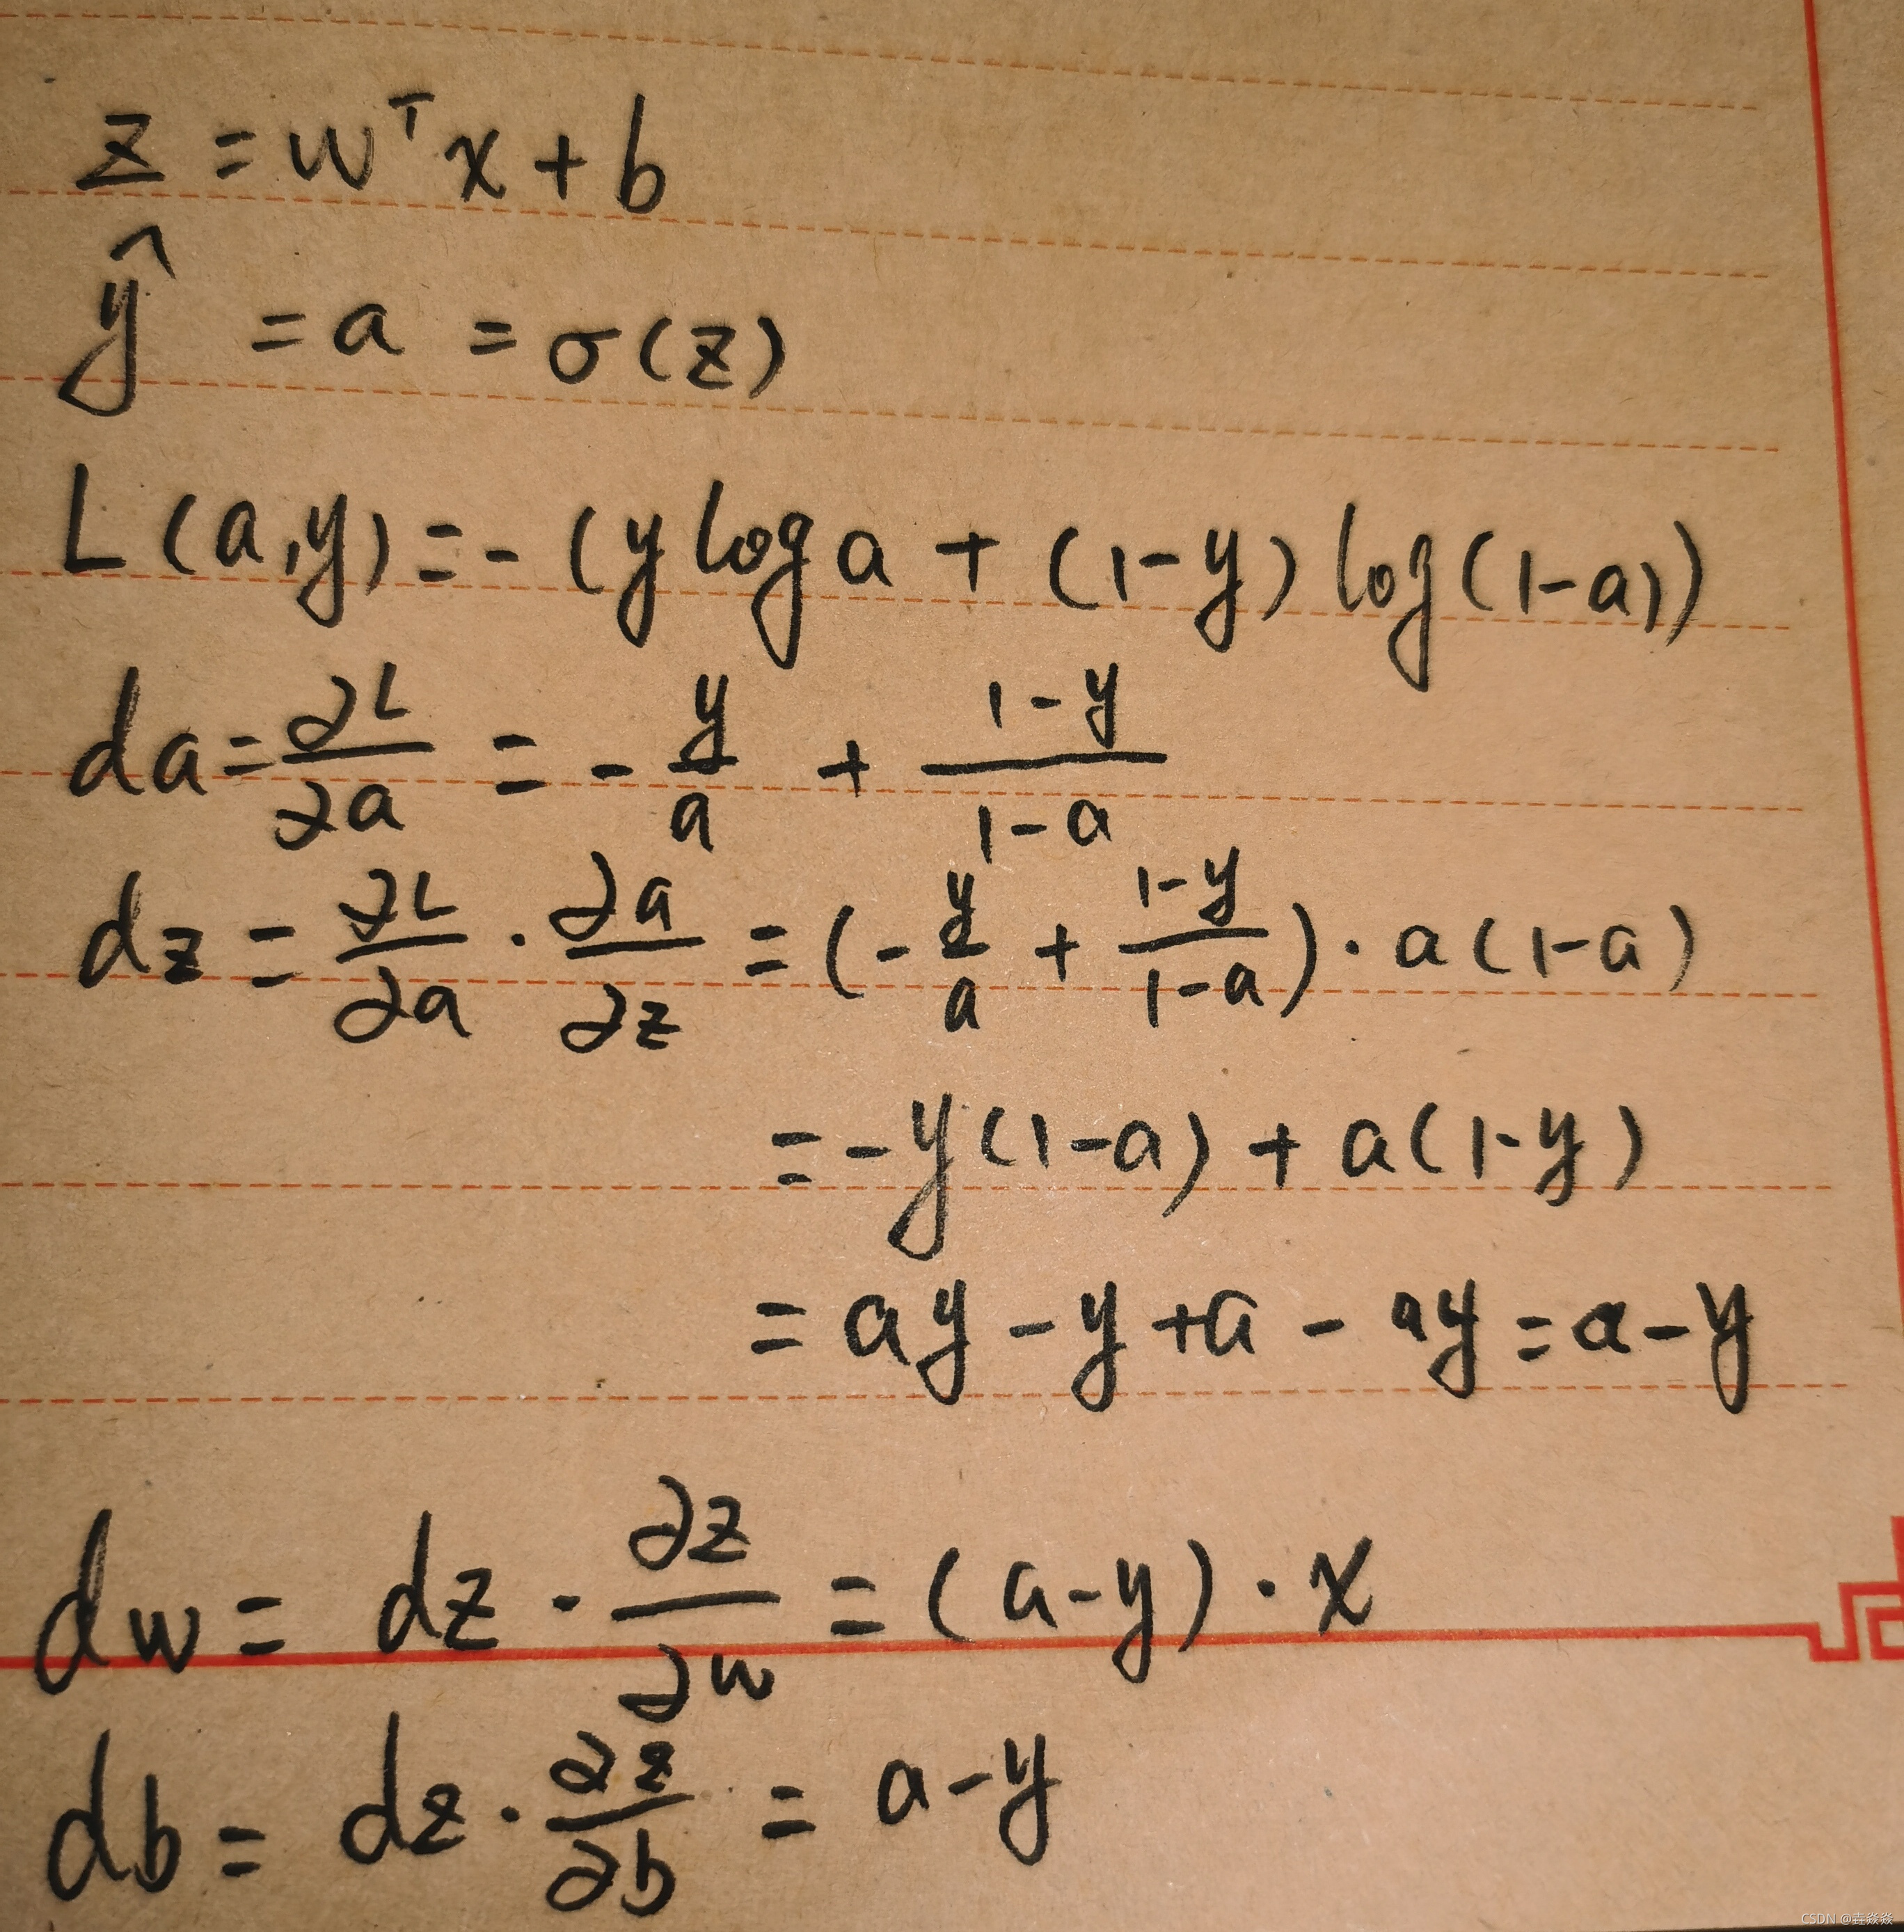 z = wᵀx + b
ŷ = a = σ(z)
L(a,y) = - (y log a + (1-y) log(1-a))
da = ∂L/∂a = - y/a + (1-y)/(1-a)
dz = ∂L/∂a · ∂a/∂z = (- y/a + (1-y)/(1-a)) · a(1-a)
= -y(1-a) + a(1-y)
= ay - y + a - ay = a - y
dw = dz · ∂z/∂w = (a-y) · x
db = dz · ∂z/∂b = a - y
CSDN @垚焱焱